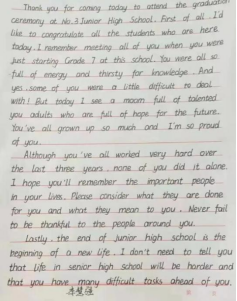 Thank you for coming today to attend the graduation
ceremony at No.3 Junior High School. First of all, I'd
like to congratulate all the students who are here
today. I remember meeting all of you when you were
just starting Grade 7 at this school. You were all so
full of energy and thirsty for knowledge. And
yes, some of you were a little difficult to deal
with! But today I see a room full of talented
you adults who are full of hope for the future.
You've all grown up so much and I'm so proud
of you.
Although you've all worked very hard over
the last three years, none of you did it alone.
I hope you'll remember the important people
in your lives. Please consider what they are done
for you and what they mean to you. Never fail
to be thankful to the people around you.
Lastly, the end of junior high school is the
beginning of a new life. I don't need to tell you
that life in senior high school will be harder and
that you have many difficult tasks ahead of you.